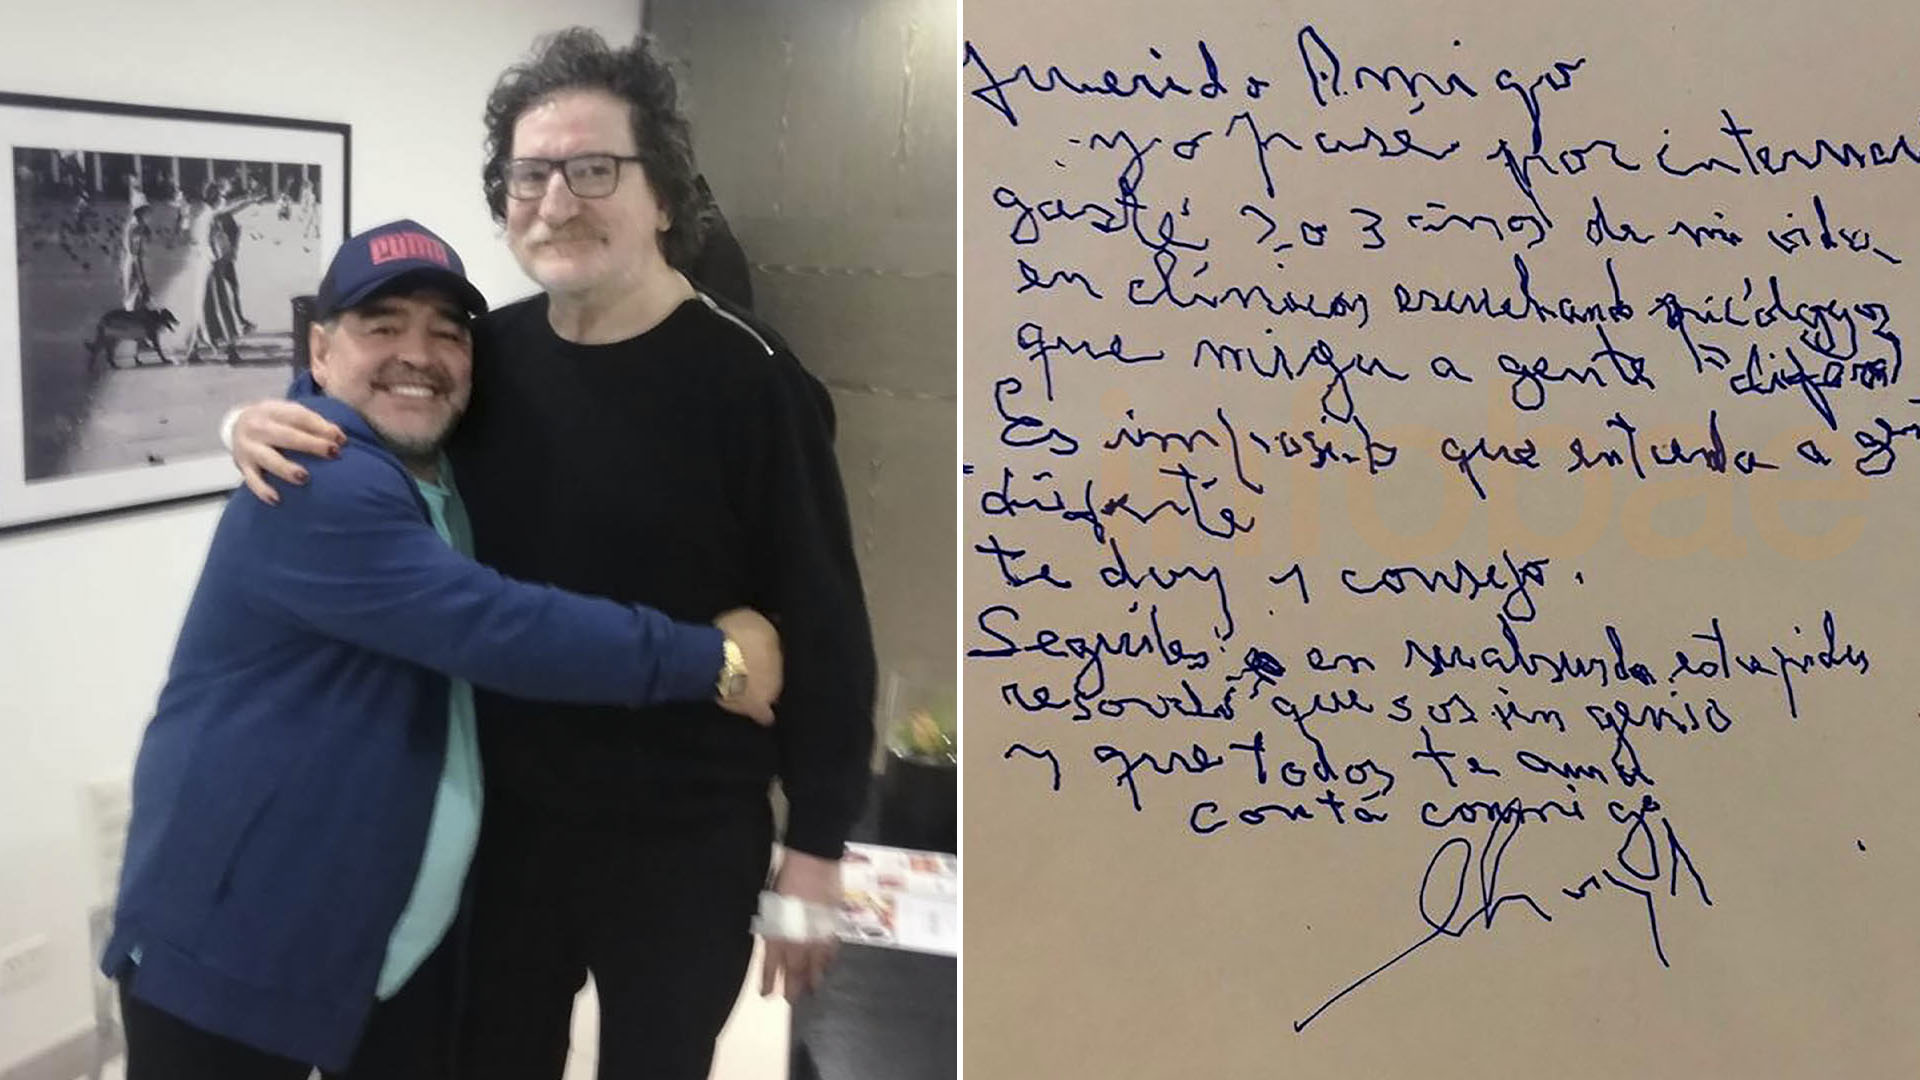 PUMA
Querido Amigo
yo pasé por interna
gasté 2 o 3 años de mi vida
en clínicas escuchando psicólogos
que miran a gente
Es imposible que entienda a
te doy 1 consejo.
Seguiles en su absurda estupidez
recordá que sos un genio
y que todos te aman
contá conmigo
Charly
infobae